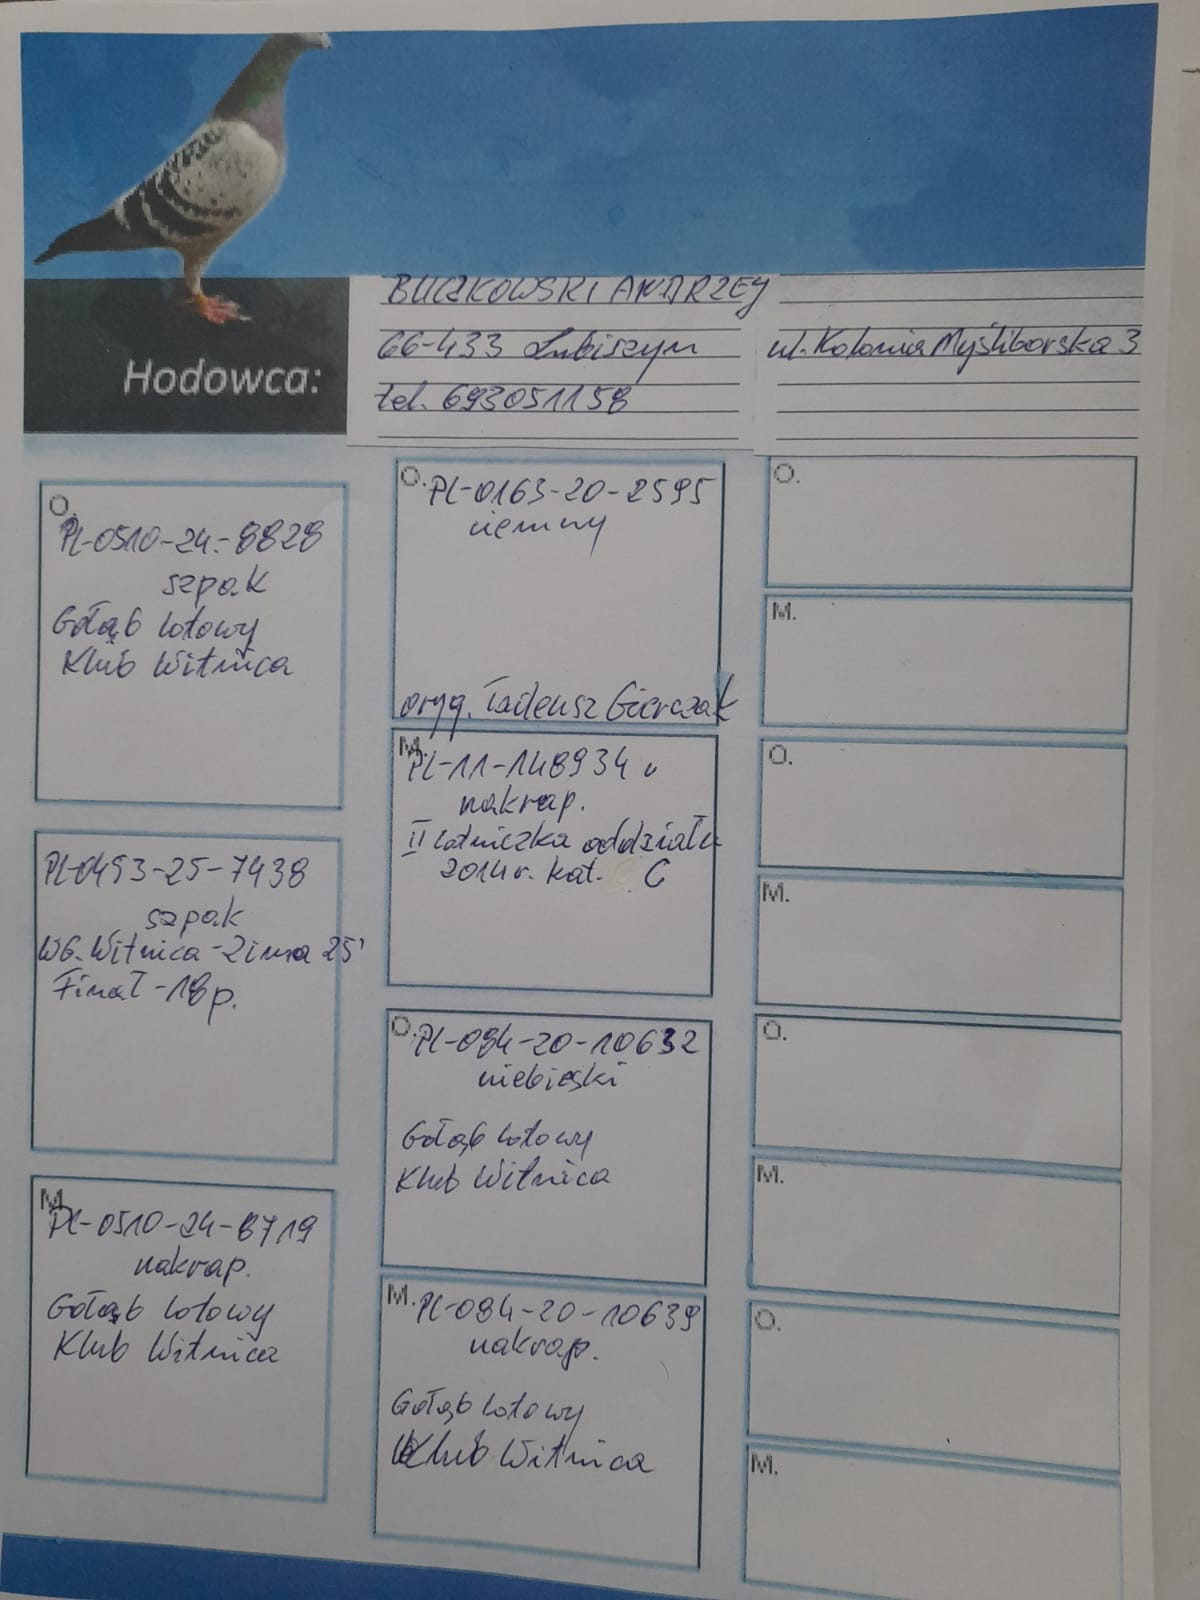 BUCZKOWSKI ANDRZEY
66-433 Lubiszyn ul. Kolonia Myśliborska 3
tel. 693051158
Hodowca:
O.
PL-0510-24-8828
szpak
Gołąb lotowy
Klub Witnica
PL-0493-25-7438
szpak
WG. Witnica-Zima 25'
Finał-18p.
M.
PL-0510-24-8719
nakrap.
Gołąb lotowy
Klub Witnica
O. PL-0163-20-2595
ciemny
oryg. Tadeusz Gierczak
M.
PL-11-148934
nakrap.
II lotniczka oddziału
2014r. kat. C
O. PL-084-20-10632
niebieski
Gołąb lotowy
Klub Witnica
M. PL-084-20-10639
nakrap.
Gołąb lotowy
Klub Witnica
O.
M.
O.
M.
O.
M.
O.
M.